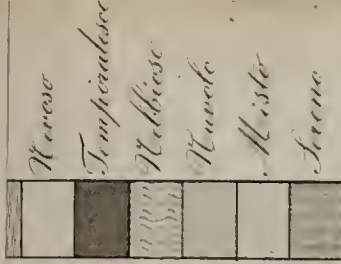 Nevoso
Temporalesco
Nebbioso
Nuvolo
Misto
Sereno